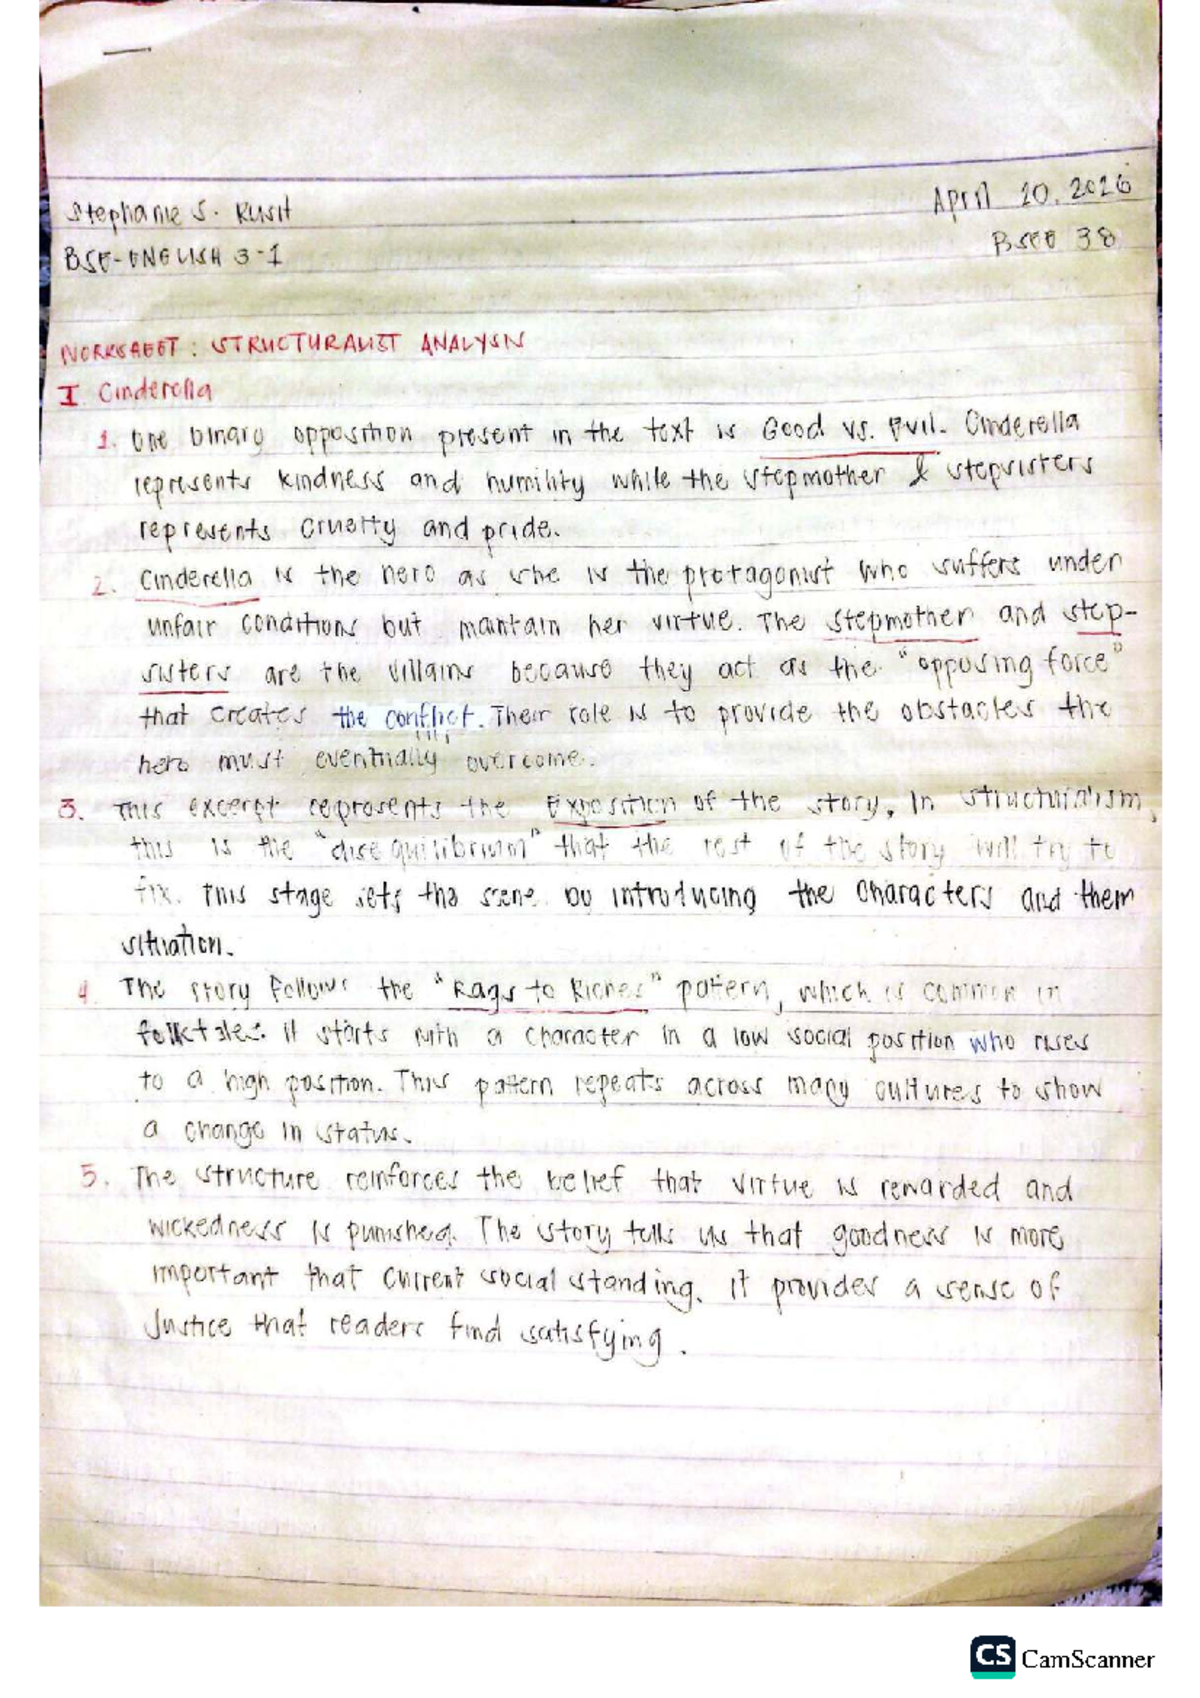 Stephanie S. Rusit
April 20, 2026
BSE-ENGLISH 3-1
BSEE 38
WORKSHEET : STRUCTURALIST ANALYSIS
I Cinderella
1. One binary opposition present in the text is Good vs. Evil. Cinderella
represents kindness and humility while the stepmother & stepsisters
represents cruelty and pride.
2. Cinderella is the hero as she is the protagonist who suffers under
unfair conditions but mantain her virtue. The stepmother and step-
sisters are the villains because they act as the "opposing force"
that creates the conflict. Their role is to provide the obstacles the
hero must eventually overcome.
3. This excerpt represents the Exposition of the story, In structuralism,
this is the "disequilibrium" that the rest of the story will try to
fix. This stage sets the scene by introducing the characters and them
situation.
4. The story follows the "Rags to Riches" patern, which is common in
folktales. It starts with a character in a low social position who rises
to a high position. This patern repeats across many cultures to show
a change in status.
5. The structure reinforces the belief that virtue is rewarded and
wickedness is punished. The story tells us that goodness is more
important that current social standing. It provides a sense of
Justice that readers find satisfying.
CS CamScanner